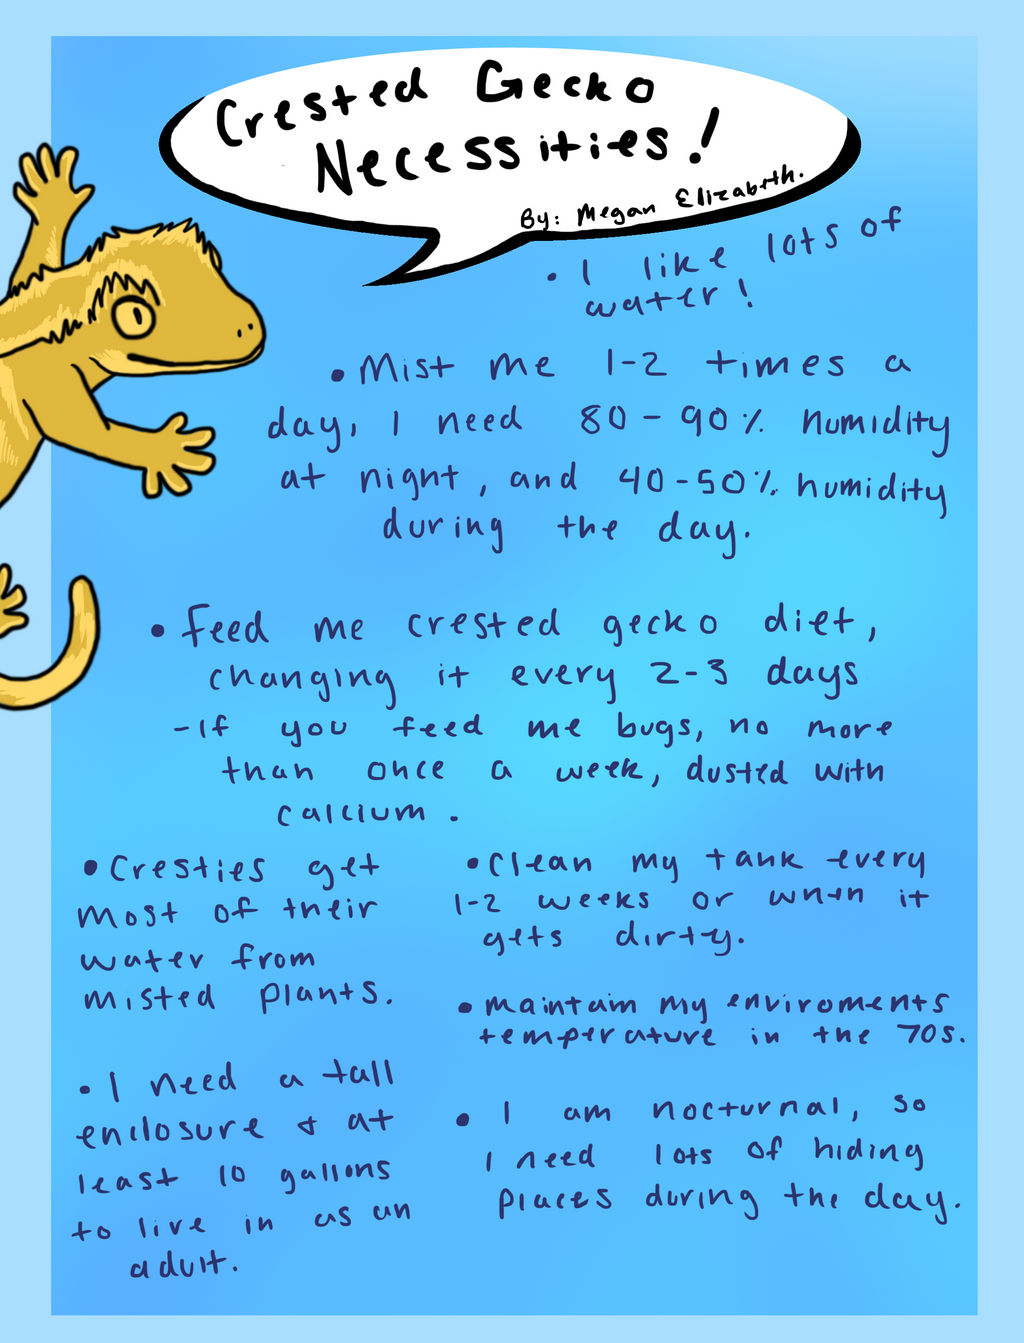 Crested Gecko
Necessities!
By: Megan Elizabeth.
• I like lots of
water!
• Mist me 1-2 times a
day, I need 80-90% humidity
at night, and 40-50% humidity
during the day.
• Feed me crested gecko diet,
changing it every 2-3 days
-If you feed me bugs, no more
than once a week, dusted with
calcium.
• Cresties get
most of their
water from
misted plants.
• I need a tall
enclosure & at
least 10 gallons
to live in as an
adult.
• Clean my tank every
1-2 weeks or when it
gets dirty.
• maintain my enviroments
temperature in the 70s.
• I am nocturnal, so
I need lots of hiding
places during the day.